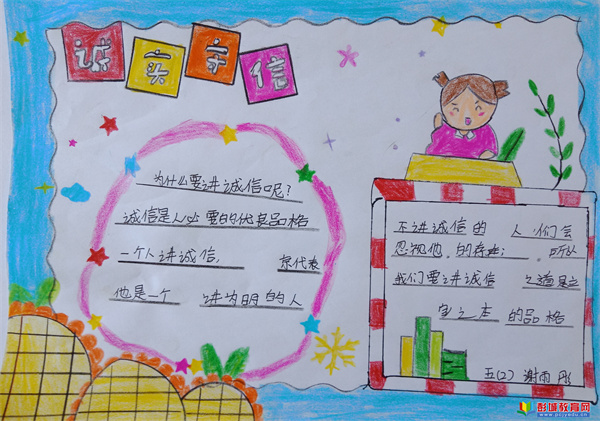 诚实守信
为什么要讲诚信呢？
诚信是人必要的优良品格
一个人讲诚信， 就代表
他是一个 讲文明的人
不讲诚信的 人 们会
忽视他 的存在； 所以
我们要讲诚信 之道是立
室之本 的品格
五(2) 谢雨彤
彭城教育网
www.pcjyedu.cn